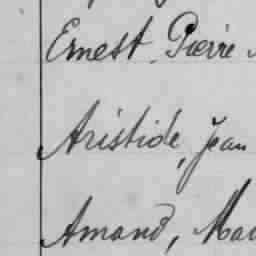 Ernest, Pierre
Aristide, Jean
Amand,